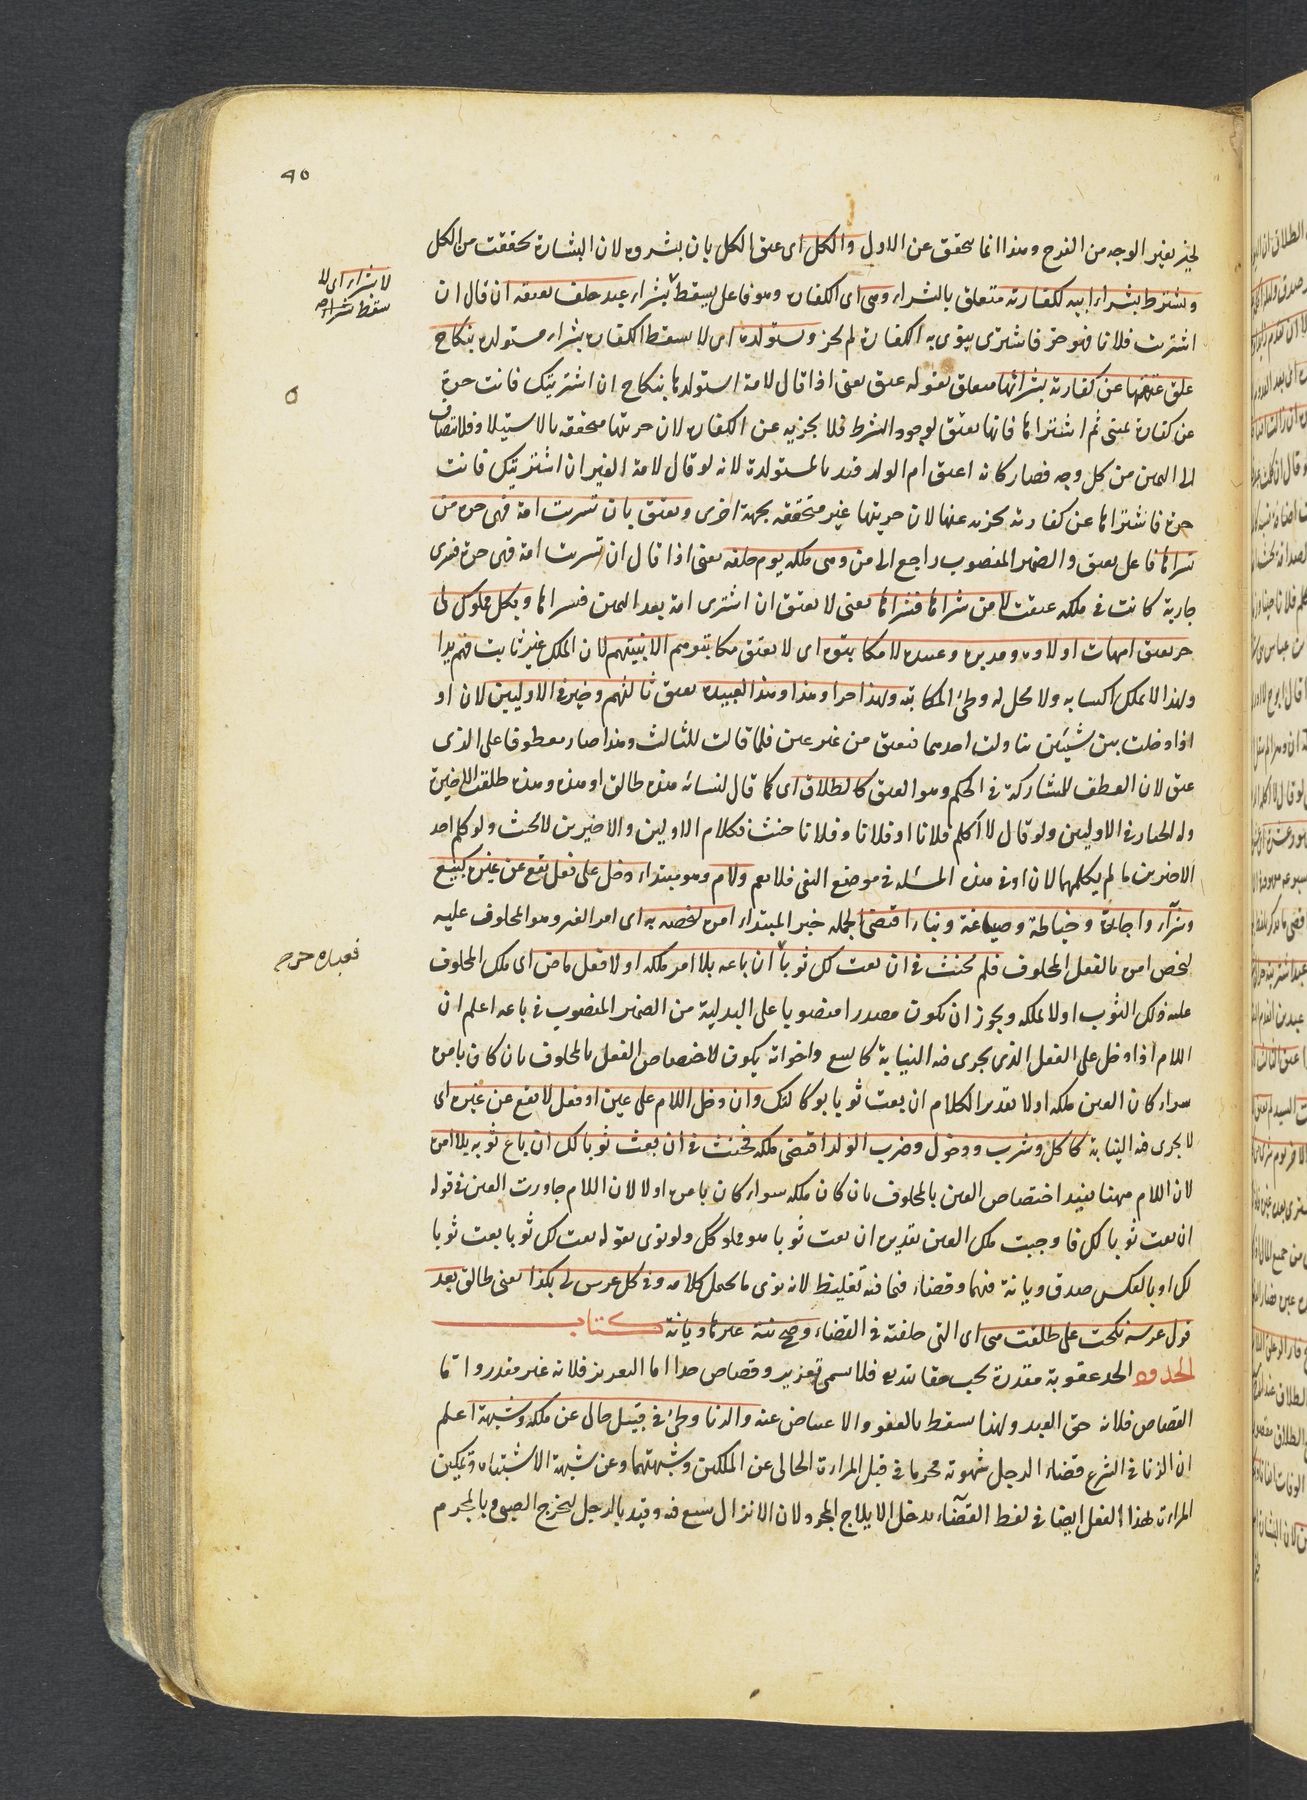 ٩٥
لخبر يغير الوجه من الفرح وهذا انما يتحقق عن الاول والكل اى عتق الكل بان بشروه لان البشارة تحققت من الكل
وسقط بشراء ابيه لكفارته متعلق بالشراء وهى اى الكفارة وهو فاعل يسقط لا بشراء عبد حلف بعتقه ان قال ان
لا بشراء اى لا
سقط بشراء صح
اشتريت فلانا فهو حر فاشترى ينوى به الكفارة لم يجز ومستولدة اى لا يسقط الكفارة بشراء مستولدة بنكاح
علق عتقها عن كفارته بشرائها متعلق بقوله عتق يعنى اذا قال لامة استولدها بنكاح ان اشتريتك فانت حرة
عن كفارة يمينى ثم اشتراها فانها تعتق لوجود الشرط فلا يجزيه عن الكفارة لان حريتها متحققة بالاستيلاد فلا تضاف
الى اليمين من كل وجه فصار كما اعتق ام الولد قيد بالمستولدة لانه لو قال لامة الغير ان اشتريتك فانت
حرة فاشتراها عن كفارته يجزيه عنها لان حريتها غير متحققة بجهة اخرى ويعتق بان تسريت امة فهى حرة من
تسراها فاعل يعتق والضمير المنصوب راجع الى من وهى ملكه يوم حلفه يعنى اذا قال ان تسريت امة فهى حرة فتسرى
جارية كانت فى ملكه عتقت لا من شراها فتسراها يعنى لا يعتق ان اشترى امة بعد اليمين فتسراها وبكل مملوك لى
حر يعتق امهات اولاده ومدبره وعبيده لا مكاتبوه اى لا يعتق مكاتبوهم الا بنيتهم لان الملك غير ثابت فيهم يدا
ولهذا لا يملك اكسابه ولا يحل له وطئ المكاتبة ولهذا حر او هذا وهذا لعبيده يعتق ثالثهم وخير فى الاوليين لان او
اذا دخلت بين شيئين تناولت احدهما فيعتق من غير عين فلما قالت للثالث وهذا صار معطوفا على الذى
عتق لان العطف للمشاركة فى الحكم وهو العتق كالطلاق اى كما قال لنسائه هذه طالق او هذه وهذه طلقت الاخيرة
وله الخيار فى الاوليين ولو قال لا اكلم فلانا او فلانا وفلانا حنث بكلام الاولين والاخيرين لا يحنث ولو كلم احد
الاخيرين ما لم يكلمهما لان او فى هذه المسئلة فى موضع النفى فلا يعم ولام وهو مبتداء دخل على فعل يقع عن غيره كبيع
وشراء واجارة وخياطة وصياغة وبناء اقتضى الجملة خبر المبتداء امره ليخصه به اى امر الغير وهو المحلوف عليه
ليخص امره بالفعل المحلوف فلم يحنث فى ان بعت لك ثوبا ان باعه بلا امر ملكه او لا فعل ماض اى ملك المحلوف
فعبده حر صح
عليه ذلك الثوب او لا يملكه ويجوز ان يكون مصدرا منصوبا على البدلية من الضمير المنصوب فى باعه اعلم ان
اللام اذا دخل على الفعل الذى يجرى فيه النيابة كالبيع واخواته يكون لاختصاص الفعل بالمحلوف بان كان بامره
سواء كان العين ملكه او لا تقدير الكلام ان بعت ثوبا بوكالتك وان دخل اللام على عين او فعل لا يقع عن غيره اى
لا يجرى فيه النيابة كاكل وشرب ودخول وضرب الولد اقتضى ملكه فحنث فى ان بعت ثوبا لك ان باع ثوبه بلا امره
لان اللام مهنا يفيد اختصاص العين بالمحلوف بان كان ملكه سواء كان بامره او لا لان اللام جاورت العين فى قوله
ان بعت ثوبا لك فاوجبت ملك العين تقديره ان بعت ثوبا هو مملوكك ولو نوى بقوله بعت لك ثوبا بعت ثوبا
لك او بالعكس صدق ديانة فيهما وقضاء فيما فيه تغليظ لانه نوى ما يحتمل كلامه وفى كل عرس لى بكذا يعنى طالق بعد
قول عرسه نكحت على طلقت هى اى التى حلفته فى القضاء وصح نية غيرها ديانة كتاب
الحدود الحد عقوبة مقدرة يجب حقا لله تعالى فلا يسمى تعزير وقصاص حدا اما التعزير فلانه غير مقدر واما
القصاص فلانه حق العبد ولهذا يسقط بالعفو والاعتياض عنه والزنا وطئ فى قبل خال عن ملك وشبهته اعلم
ان الزنا فى الشرع قضاء الرجل شهوته محرما فى قبل المراءة الخالى عن الملكين وشبهتهما وعن شبهة الاشتباه وتمكين
المراءة لهذا الفعل ايضا فى لفظ القضاء يدخل الايلاج المجرد لان الانزال سبع فيه وقيد بالرجل ليخرج الصبى وبالمحرم